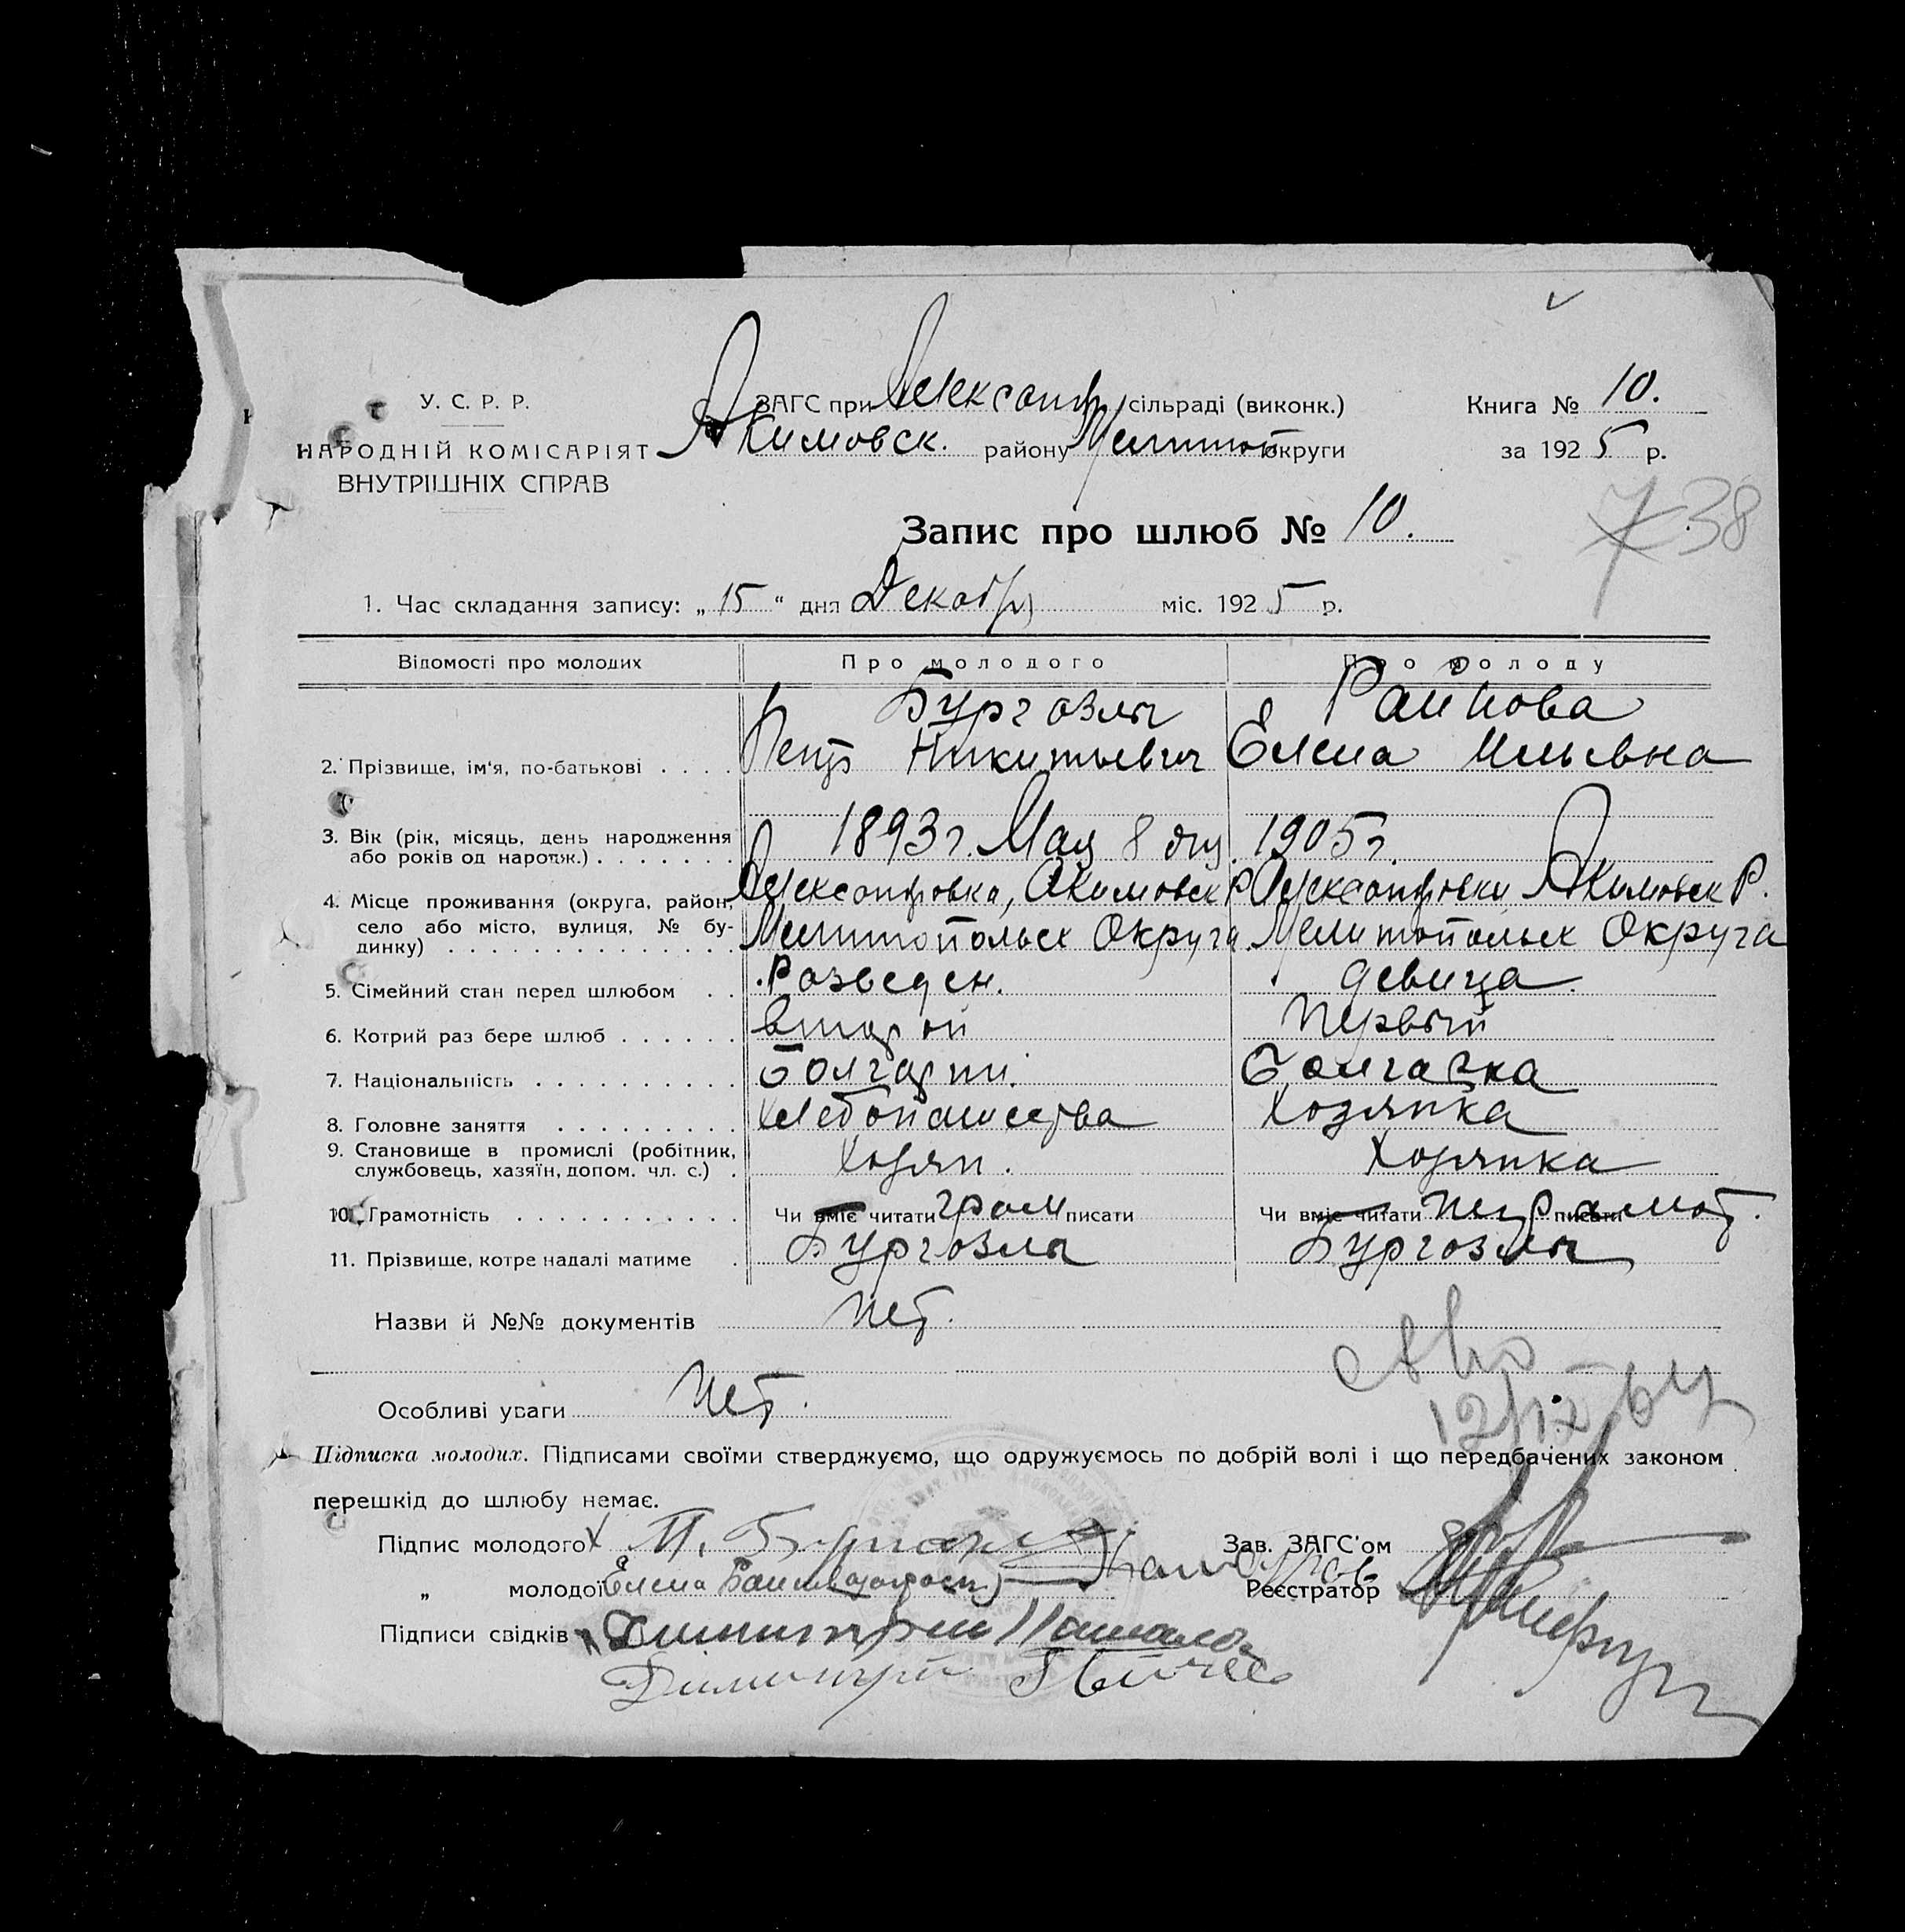 У. С. Р. Р.
НАРОДНІЙ КОМІСАРІЯТ
ВНУТРІШНІХ СПРАВ
ЗАГС при Александр сільраді (виконк.)
Акимовск. району Мелитоп округи
Книга № 10.
за 1925 р.
7 38
Запис про шлюб № 10.
1. Час складання запису: „15“ дня Декабря міс. 1925 р.
Відомості про молодих Про молодого Про молоду
Бургозлы Райнова
2. Прізвище, ім'я, по-батькові . . . . Петр Никитьевич Елена Ильевна
3. Вік (рік, місяць, день народження 1893 г. Мая 8 дня. 1905 г.
або років од народж.) . . . . . . .
4. Місце проживання (округа, район, Александровка, Акимовск Р Александровки Акимовск Р.
село або місто, вулиця, № бу- Мелитопольск Округа. Мелитопольск Округа
динку) . . . . . . . . . . . . . .
5. Сімейний стан перед шлюбом . . Разведен. девица.
6. Котрий раз бере шлюб . . . . . . второй Первый
7. Національність . . . . . . . . . . болгарин. болгарка
8. Головне заняття . . . . . . . . . Хлебопашества Хозяйка
9. Становище в промислі (робітник, Хозяин. Хозяйка
службовець, хазяїн, допом. чл. с.) .
10. Грамотність . . . . . . . . . . . Чи вміє читати грам писати Чи вміє читати неграмот. писати
11. Прізвище, котре надалі матиме . Бургозлы Бургозлы
Назви й №№ документів нет.
Особливі уваги нет.
12/12
Підписка молодих. Підписами своїми стверджуємо, що одружуємось по добрій волі і що передбачених законом
перешкід до шлюбу немає.
Підпис молодого X П.
Зав. ЗАГС'ом
„ молодої Елена
Реєстратор
Підписи свідків Димитрий
Димитрий